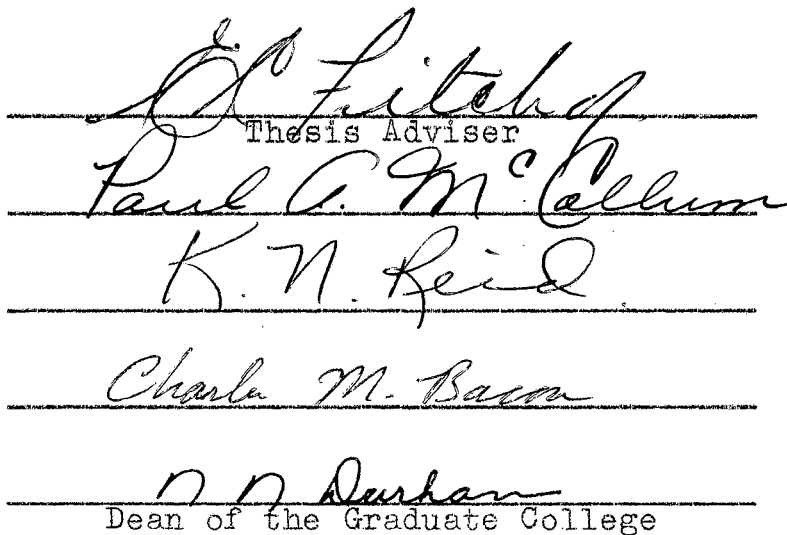 E C Fitch Jr
Thesis Adviser
Paul A. McCollum
K. N. Reid
Charles M. Bacon
N N Durham
Dean of the Graduate College